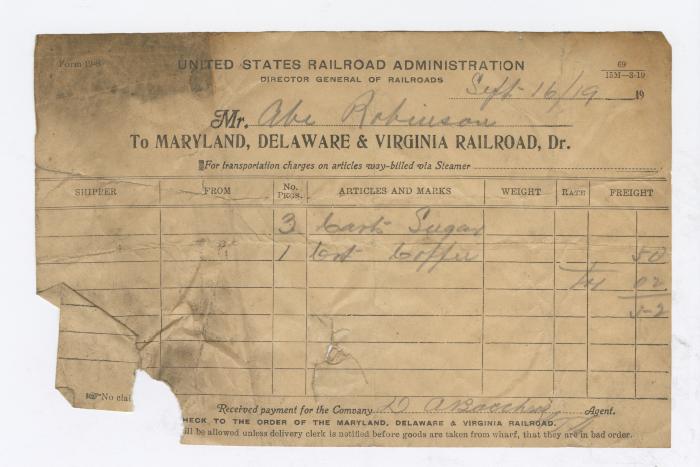 Form 19-8
UNITED STATES RAILROAD ADMINISTRATION
DIRECTOR GENERAL OF RAILROADS
69
15M—3-19
Sept 16/19 19
Mr. Abe Robinson
To MARYLAND, DELAWARE & VIRGINIA RAILROAD, Dr.
For transportation charges on articles way-billed via Steamer
SHIPPER FROM No. PKGS. ARTICLES AND MARKS WEIGHT RATE FREIGHT
3 Carts Sugar
1 Crt Coffee 50
02
52
No clai
Received payment for the Company Agent.
HECK TO THE ORDER OF THE MARYLAND, DELAWARE & VIRGINIA RAILROAD.
ill be allowed unless delivery clerk is notified before goods are taken from wharf, that they are in bad order.